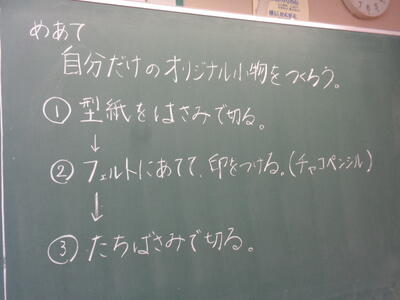 めあて
自分だけのオリジナル小物をつくろう。
① 型紙をはさみで切る。
↓
② フェルトにあてて、印をつける。(チャコペンシル)
↓
③ たちばさみで切る。